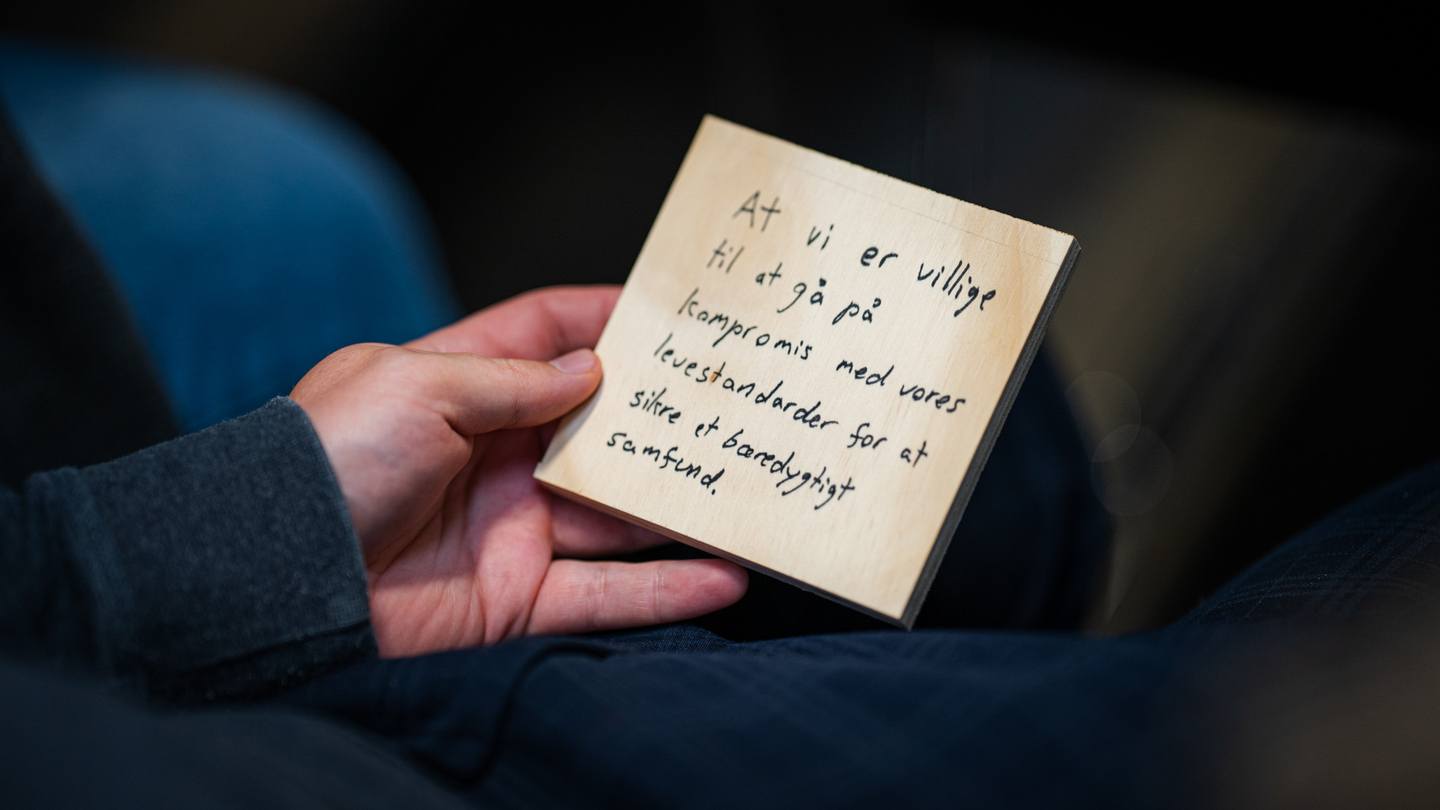 At vi er villige
til at gå på
kompromis med vores
levestandarder for at
sikre et bæredygtigt
samfund.